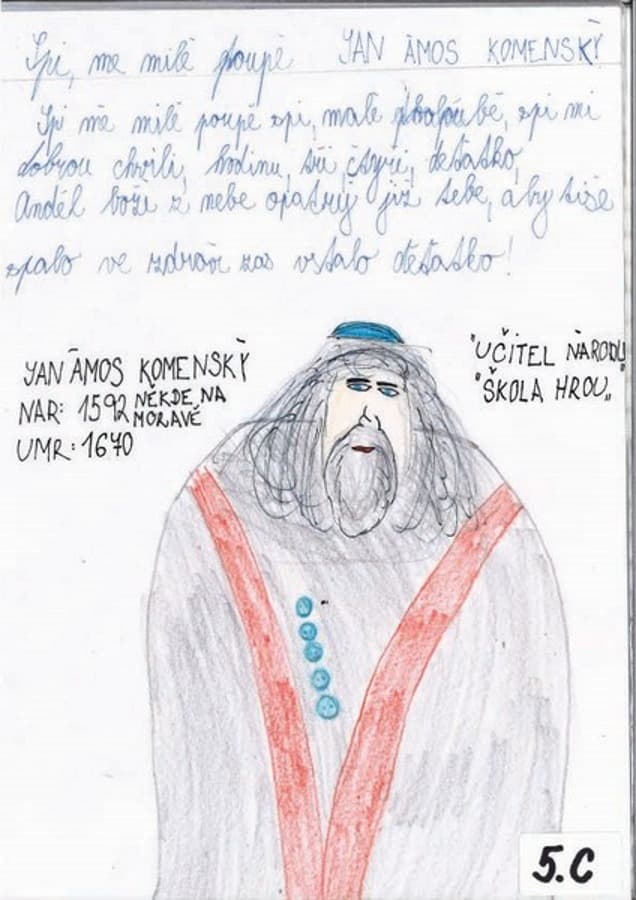 Spi, me milé poupě JAN ÁMOS KOMENSKÝ
Spi mé milé poupě spi, malé, spi mi
dobrou chvíli, hodinu, tři, čtyři, děťátko,
Anděl boží z nebe opatruj již tebe, aby tiše
spalo ve zdraví zas vstalo děťátko!
JAN ÁMOS KOMENSKÝ
NAR: 1592 NĚKDE NA
MORAVĚ
UMR: 1670
"UČITEL NÁRODŮ"
"ŠKOLA HROU„
5.C